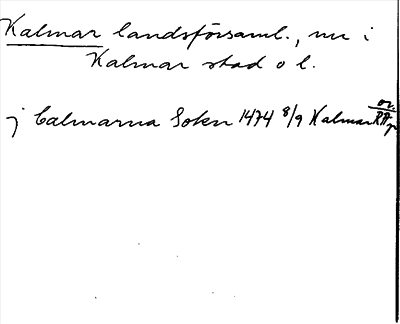 Kalmar landsförsaml., nu i
Kalmar stad o l.
j Calmarna Sokn 1474 8/9 Kalmar or. RAp